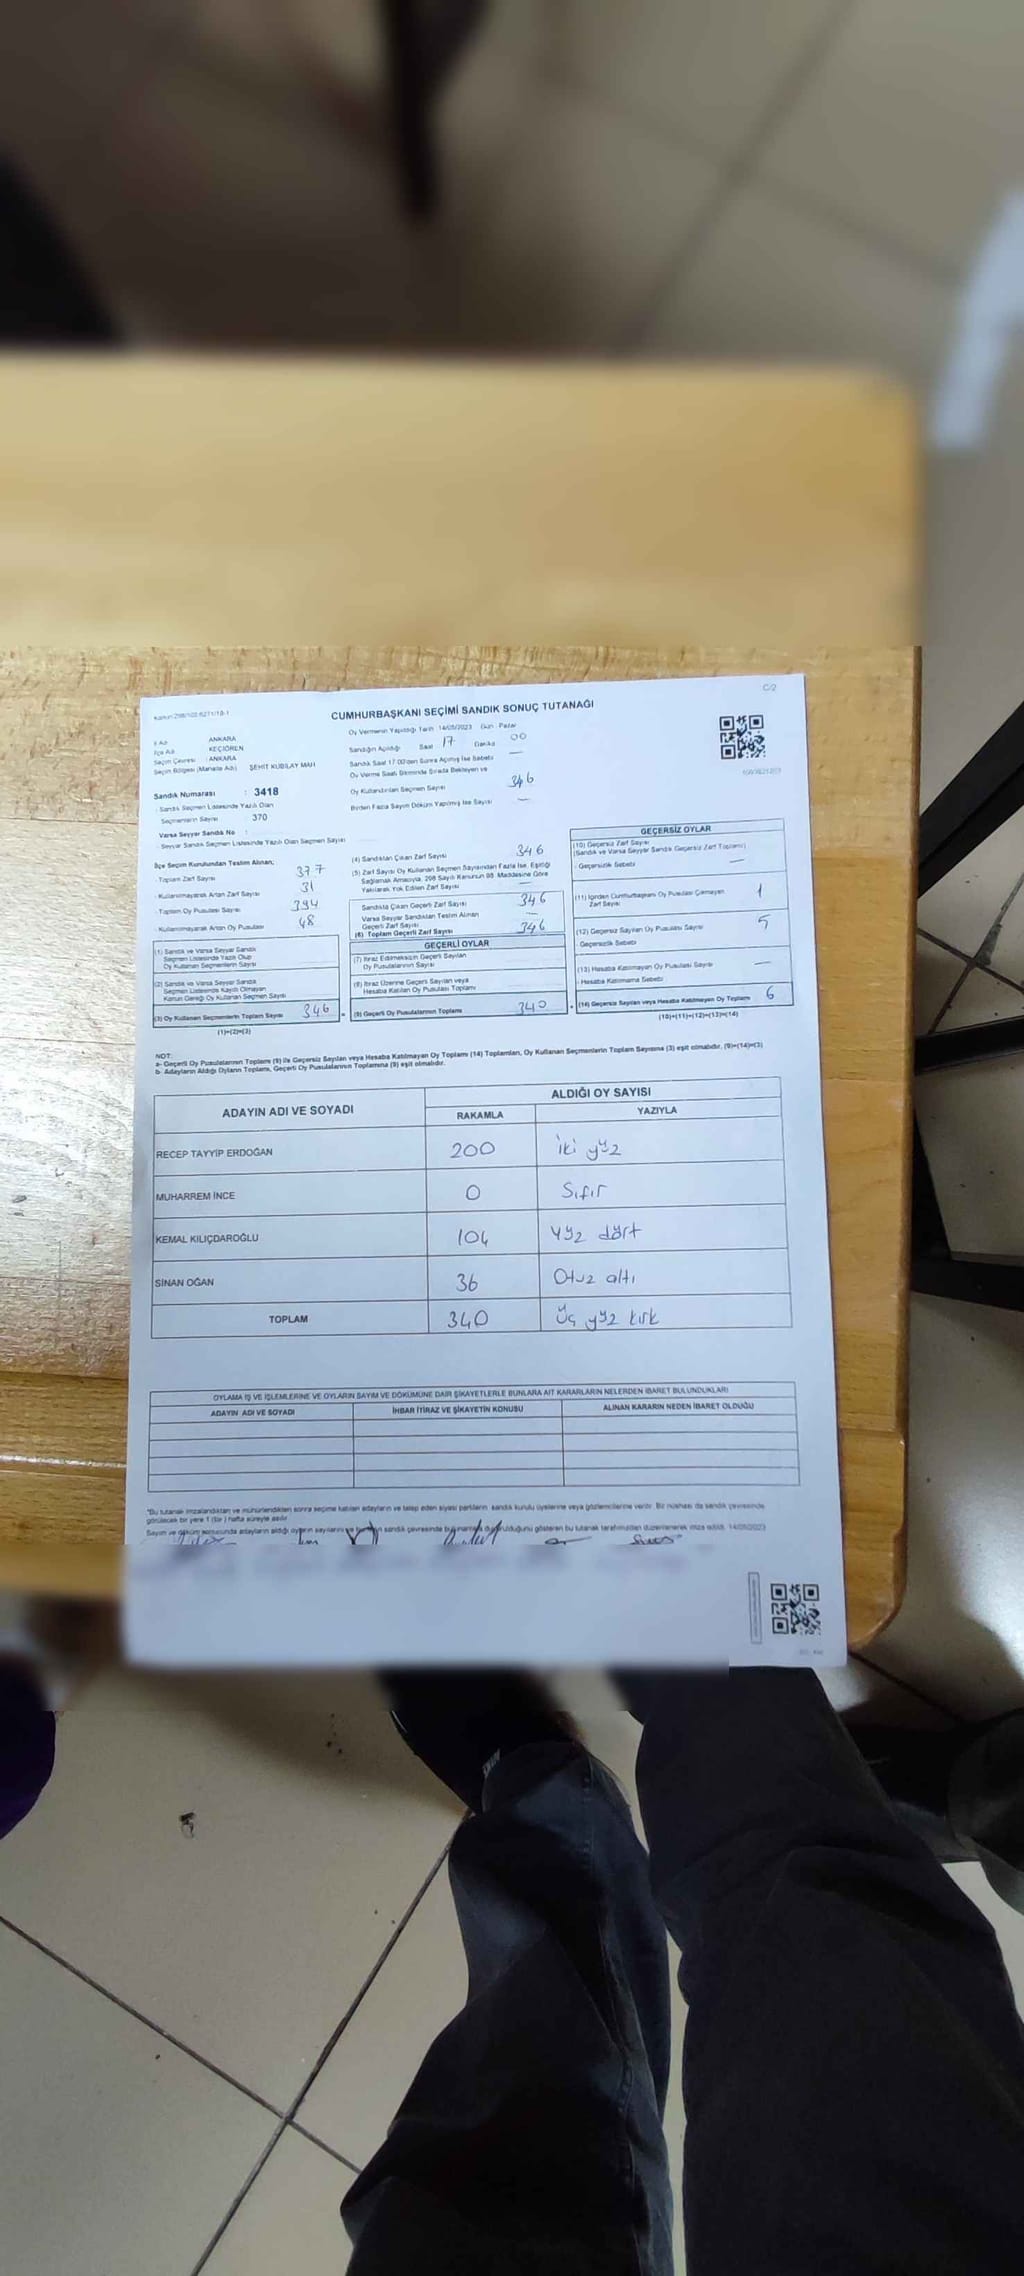 C/2
CUMHURBAŞKANI SEÇİMİ SANDIK SONUÇ TUTANAĞI
İl Adı : ANKARA
İlçe Adı : KEÇİÖREN
Seçim Çevresi : ANKARA
Seçim Bölgesi (Mahalle Adı) : ŞEHİT KUBİLAY MAH
Oy Vermenin Yapıldığı Tarih : 14/05/2023 Gün : Pazar
Sandığın Açıldığı Saat : 17 Dakika 00
Sandık Saat 17:00'den Sonra Açılmış İse Sebebi —
Oy Verme Saati Bitiminde Sırada Bekleyen ve
Oy Kullandırılan Seçmen Sayısı 346
Birden Fazla Sayım Döküm Yapılmış İse Sayısı —
Sandık Numarası : 3418
- Sandık Seçmen Listesinde Yazılı Olan
Seçmenlerin Sayısı : 370
Varsa Seyyar Sandık No :
- Seyyar Sandık Seçmen Listesinde Yazılı Olan Seçmen Sayısı
İlçe Seçim Kurulundan Teslim Alınan;
- Toplam Zarf Sayısı 377
- Kullanılmayarak Artan Zarf Sayısı 31
- Toplam Oy Pusulası Sayısı 394
- Kullanılmayarak Artan Oy Pusulası 48
(1) Sandık ve Varsa Seyyar Sandık
Seçmen Listesinde Yazılı Olup
Oy Kullanan Seçmenlerin Sayısı
(2) Sandık ve Varsa Seyyar Sandık
Seçmen Listesinde Kayıtlı Olmayan
Kanun Gereği Oy Kullanan Seçmen Sayısı
(3) Oy Kullanan Seçmenlerin Toplam Sayısı 346
(1)+(2)=(3)
(4) Sandıktan Çıkan Zarf Sayısı 346
(5) Zarf Sayısı Oy Kullanan Seçmen Sayısından Fazla İse, Eşitliği
Sağlamak Amacıyla, 298 Sayılı Kanunun 98. Maddesine Göre
Yakılarak Yok Edilen Zarf Sayısı —
Sandıkta Çıkan Geçerli Zarf Sayısı 346
Varsa Seyyar Sandıktan Teslim Alınan
Geçerli Zarf Sayısı —
(6) Toplam Geçerli Zarf Sayısı 346
GEÇERLİ OYLAR
(7) İtiraz Edilmeksizin Geçerli Sayılan
Oy Pusulalarının Sayısı
(8) İtiraz Üzerine Geçerli Sayılan veya
Hesaba Katılan Oy Pusulası Toplamı
(9) Geçerli Oy Pusulalarının Toplamı 340
GEÇERSİZ OYLAR
(10) Geçersiz Zarf Sayısı
(Sandık ve Varsa Seyyar Sandık Geçersiz Zarf Toplamı)
- Geçersizlik Sebebi —
(11) İçinden Cumhurbaşkanı Oy Pusulası Çıkmayan
Zarf Sayısı 1
(12) Geçersiz Sayılan Oy Pusulası Sayısı 5
Geçersizlik Sebebi
(13) Hesaba Katılmayan Oy Pusulası Sayısı —
- Hesaba Katılmama Sebebi
(14) Geçersiz Sayılan veya Hesaba Katılmayan Oy Toplamı 6
(10)+(11)+(12)+(13)=(14)
NOT:
a- Geçerli Oy Pusulalarının Toplamı (9) ile Geçersiz Sayılan veya Hesaba Katılmayan Oy Toplamı (14) Toplamları, Oy Kullanan Seçmenlerin Toplam Sayısına (3) eşit olmalıdır. (9)+(14)=(3)
b- Adayların Aldığı Oyların Toplamı, Geçerli Oy Pusulalarının Toplamına (9) eşit olmalıdır.
ADAYIN ADI VE SOYADI
ALDIĞI OY SAYISI
RAKAMLA YAZIYLA
RECEP TAYYİP ERDOĞAN 200 iki yüz
MUHARREM İNCE 0 Sıfır
KEMAL KILIÇDAROĞLU 104 yüz dört
SİNAN OĞAN 36 Otuz altı
TOPLAM 340 üç yüz kırk
OYLAMA İŞ VE İŞLEMLERİNE VE OYLARIN SAYIM VE DÖKÜMÜNE DAİR ŞİKAYETLERLE BUNLARA AİT KARARLARIN NELERDEN İBARET BULUNDUKLARI
ADAYIN ADI VE SOYADI İHBAR İTİRAZ VE ŞİKAYETİN KONUSU ALINAN KARARIN NEDEN İBARET OLDUĞU
"Bu tutanak imzalandıktan ve mühürlendikten sonra seçime katılan adayların ve talep eden siyasi partilerin sandık kurulu üyelerine veya gözlemcilerine verilir. Bir nüshası da sandık çevresinde
görülecek bir yere 1 (bir) hafta süreyle asılır.